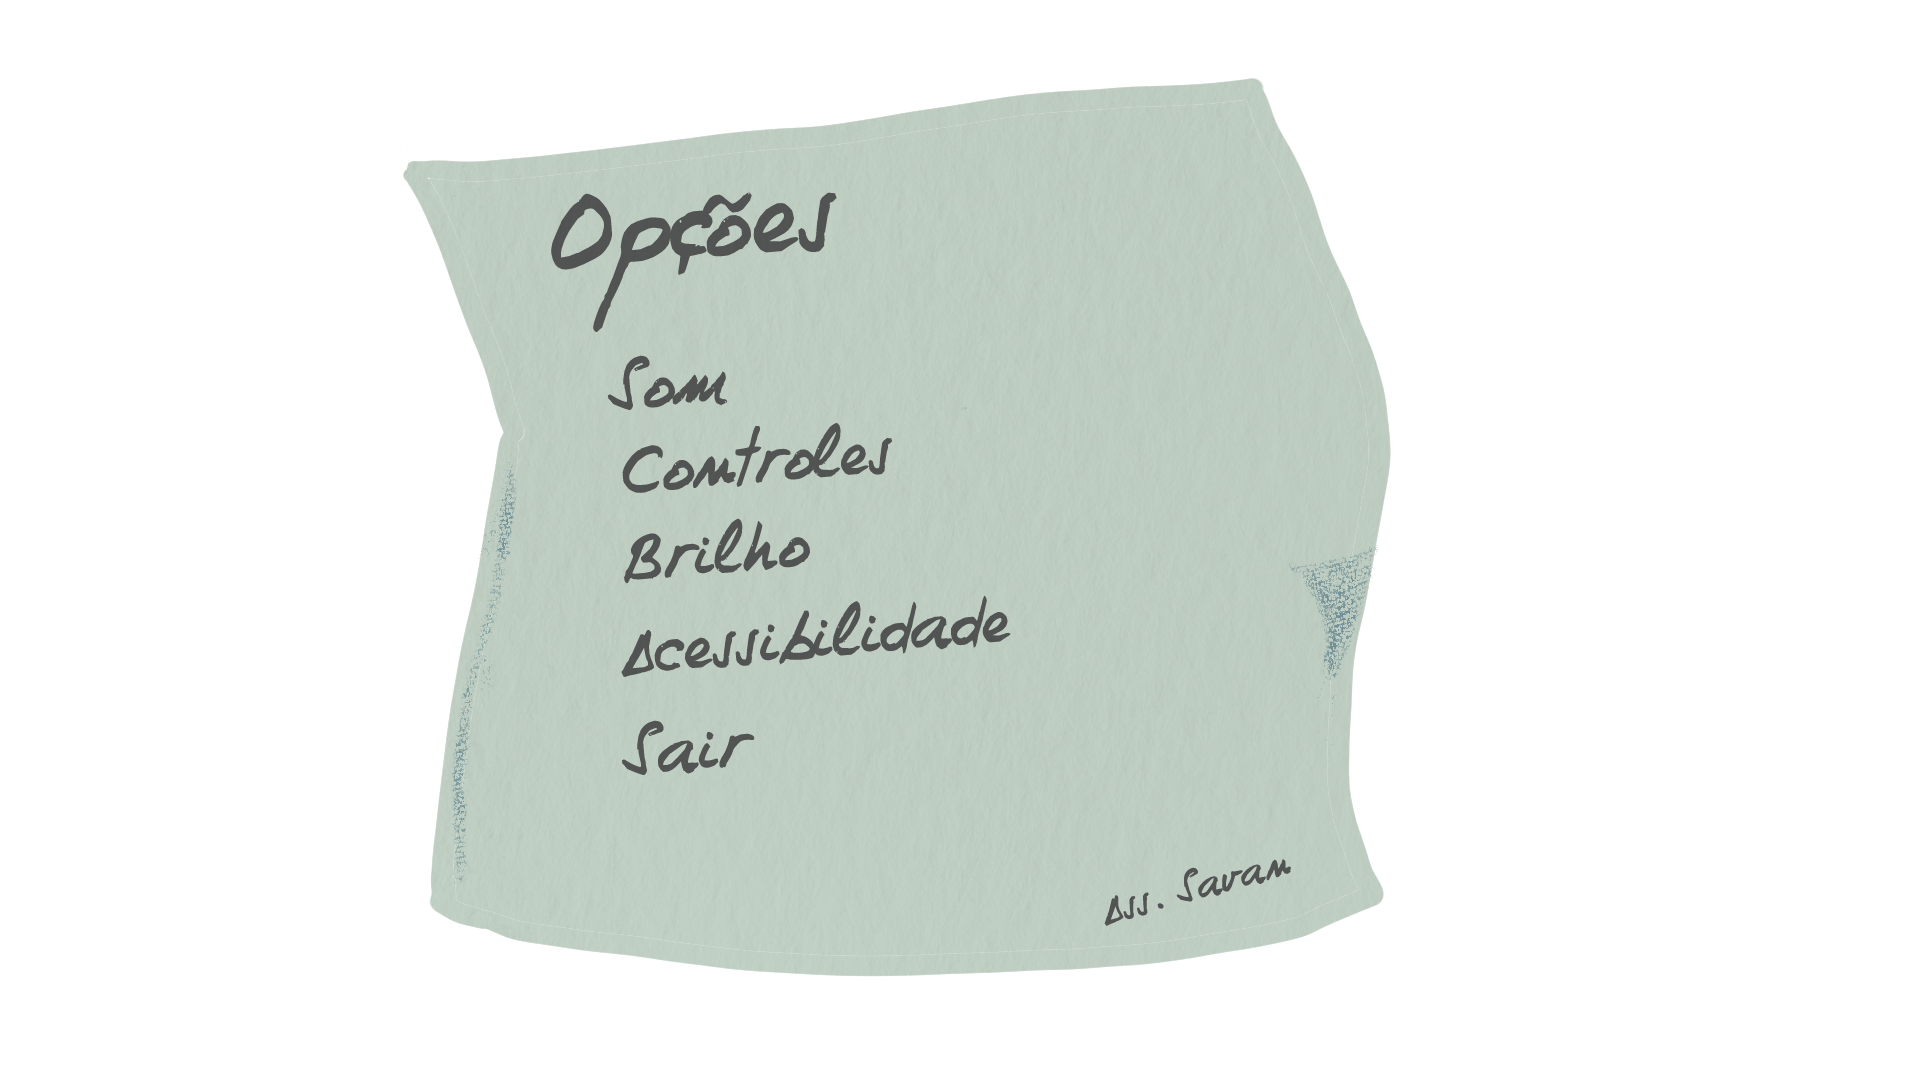 Opções
Som
Controles
Brilho
Acessibilidade
Sair
Ass. Savam